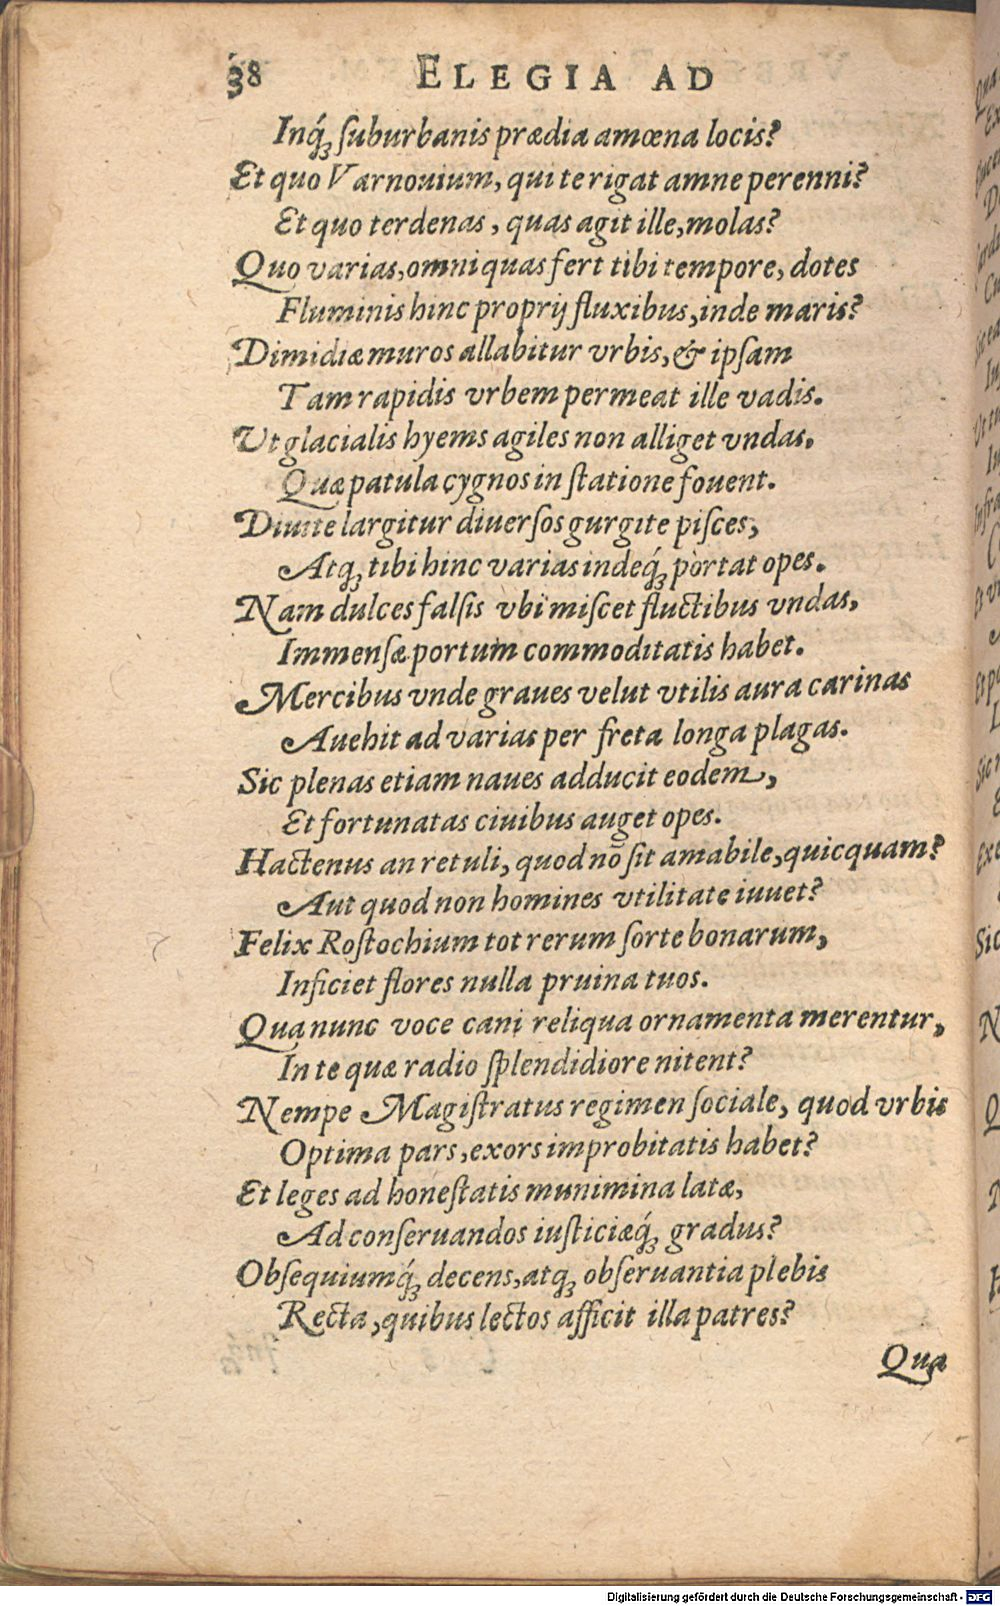 38 ELEGIA AD
Inq́ꝫ ſuburbanis prædia amœna locis?
Et quo Varnouium, qui te rigat amne perenni?
Et quo terdenas, quas agit ille, molas?
Quo varias, omni quas fert tibi tempore, dotes
Fluminis hinc proprij fluxibus, inde maris?
Dimidiæ muros allabitur vrbis, & ipſam
Tam rapidis vrbem permeat ille vadis.
Ut glacialis hyems agiles non alliget vndas,
Quæ patula cygnos in ſtatione fouent.
Diuite largitur diuerſos gurgite piſces,
Atqꝫ tibi hinc varias indeq́ꝫ portat opes.
Nam dulces falſis vbi miſcet fluctibus vndas,
Immenſæ portum commoditatis habet.
Mercibus vnde graues velut vtilis aura carinas
Auehit ad varias per freta longa plagas.
Sic plenas etiam naues adducit eodem,
Et fortunatas ciuibus auget opes.
Hactenus an retuli, quod nō ſit amabile, quicquam?
Aut quod non homines vtilitate iuuet?
Felix Roſtochium tot rerum ſorte bonarum,
Inficiet flores nulla pruina tuos.
Qua nunc voce cani reliqua ornamenta merentur,
In te quæ radio ſplendidiore nitent?
Nempe Magiſtratus regimen ſociale, quod vrbis
Optima pars, exors improbitatis habet?
Et leges ad honeſtatis munimina latæ,
Ad conſeruandos iuſticiæq́ꝫ gradus?
Obſequiumq́ꝫ decens, atqꝫ obſeruantia plebis
Recta, quibus lectos afficit illa patres?
Qua
Digitalisierung gefördert durch die Deutsche Forschungsgemeinschaft - DFG